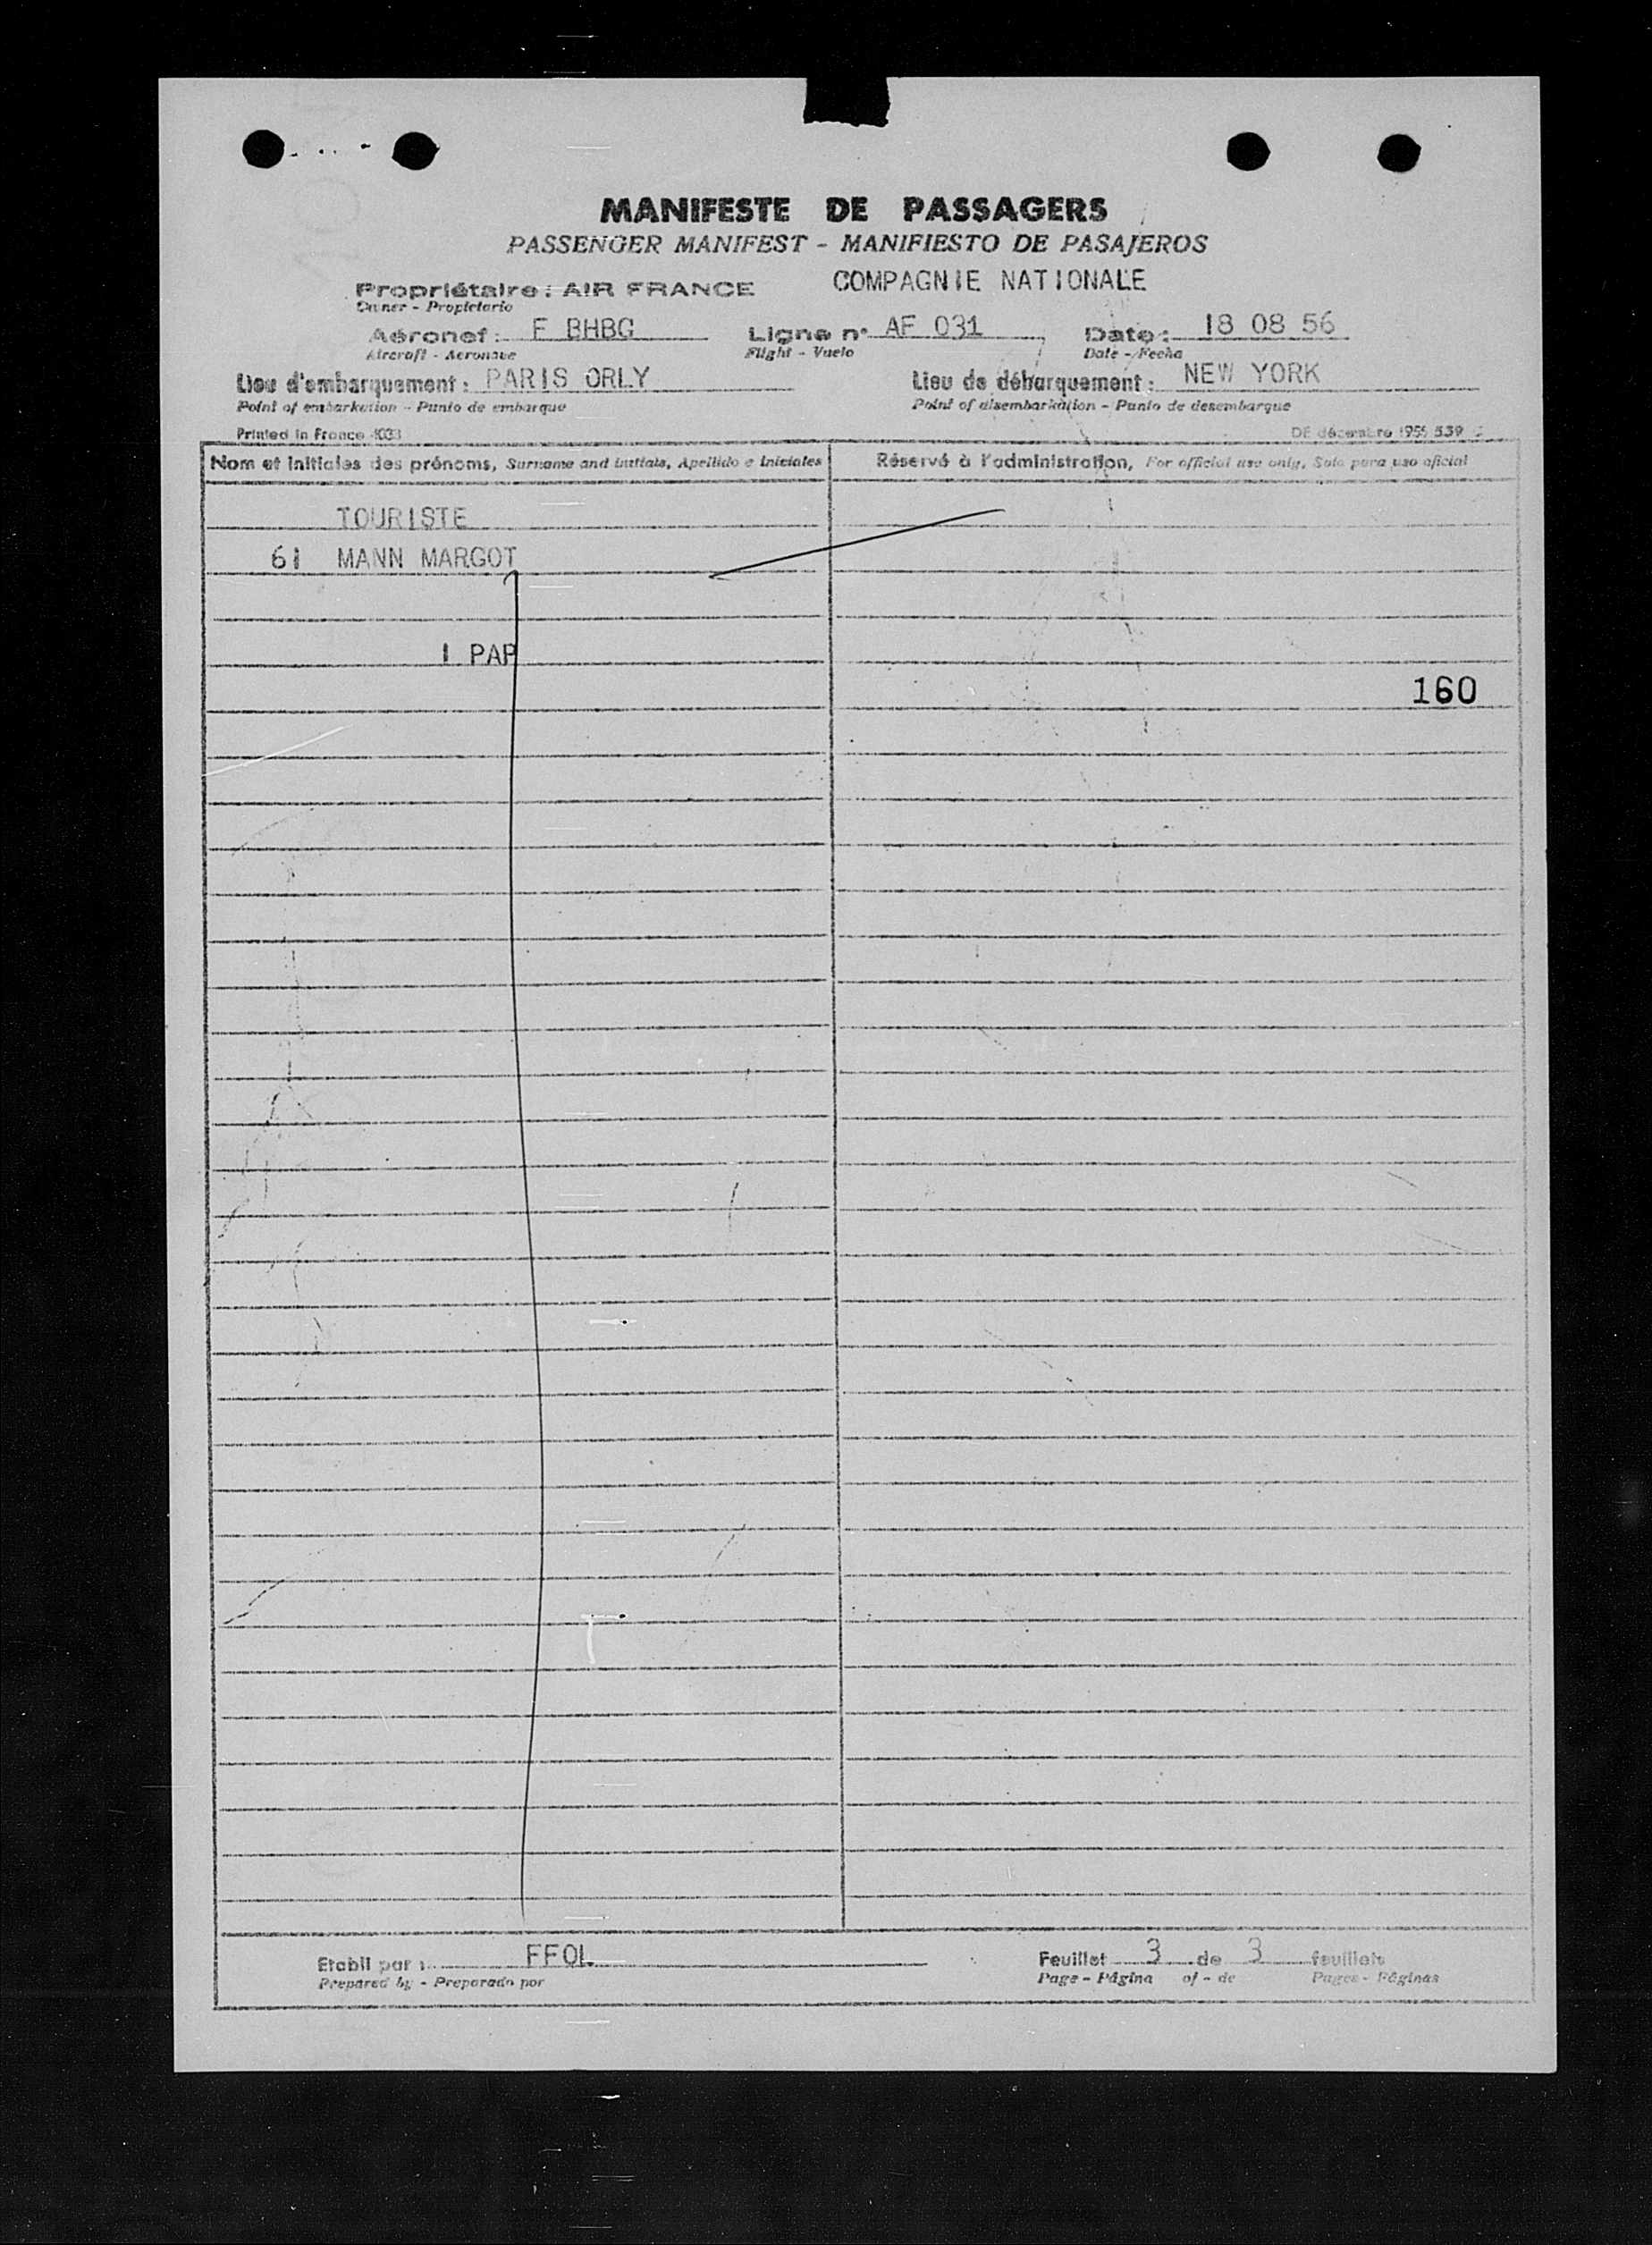 MANIFESTE DE PASSAGERS
PASSENGER MANIFEST - MANIFIESTO DE PASAJEROS
Propriétaire : AIR FRANCE COMPAGNIE NATIONALE
Owner - Propietario
Aéronef : F BHBG Ligne n° AF 031 Date : 18 08 56
Aircraft - Aeronave Flight - Vuelo Date - Fecha
Lieu d'embarquement : PARIS ORLY Lieu de débarquement : NEW YORK
Point of embarkation - Punto de embarque Point of disembarkation - Punto de desembarque
Printed in France DE décembre 1955 539
Nom et initiales des prénoms, Surname and initials, Apellido e iniciales Réservé à l'administration, For official use only, Solo para uso oficial
TOURISTE
61 MANN MARGOT
1 PAP
160
Etabli par : FFOL Feuillet 3 de 3 feuillets
Prepared by - Preparado por Page - Página of - de Pages - Páginas